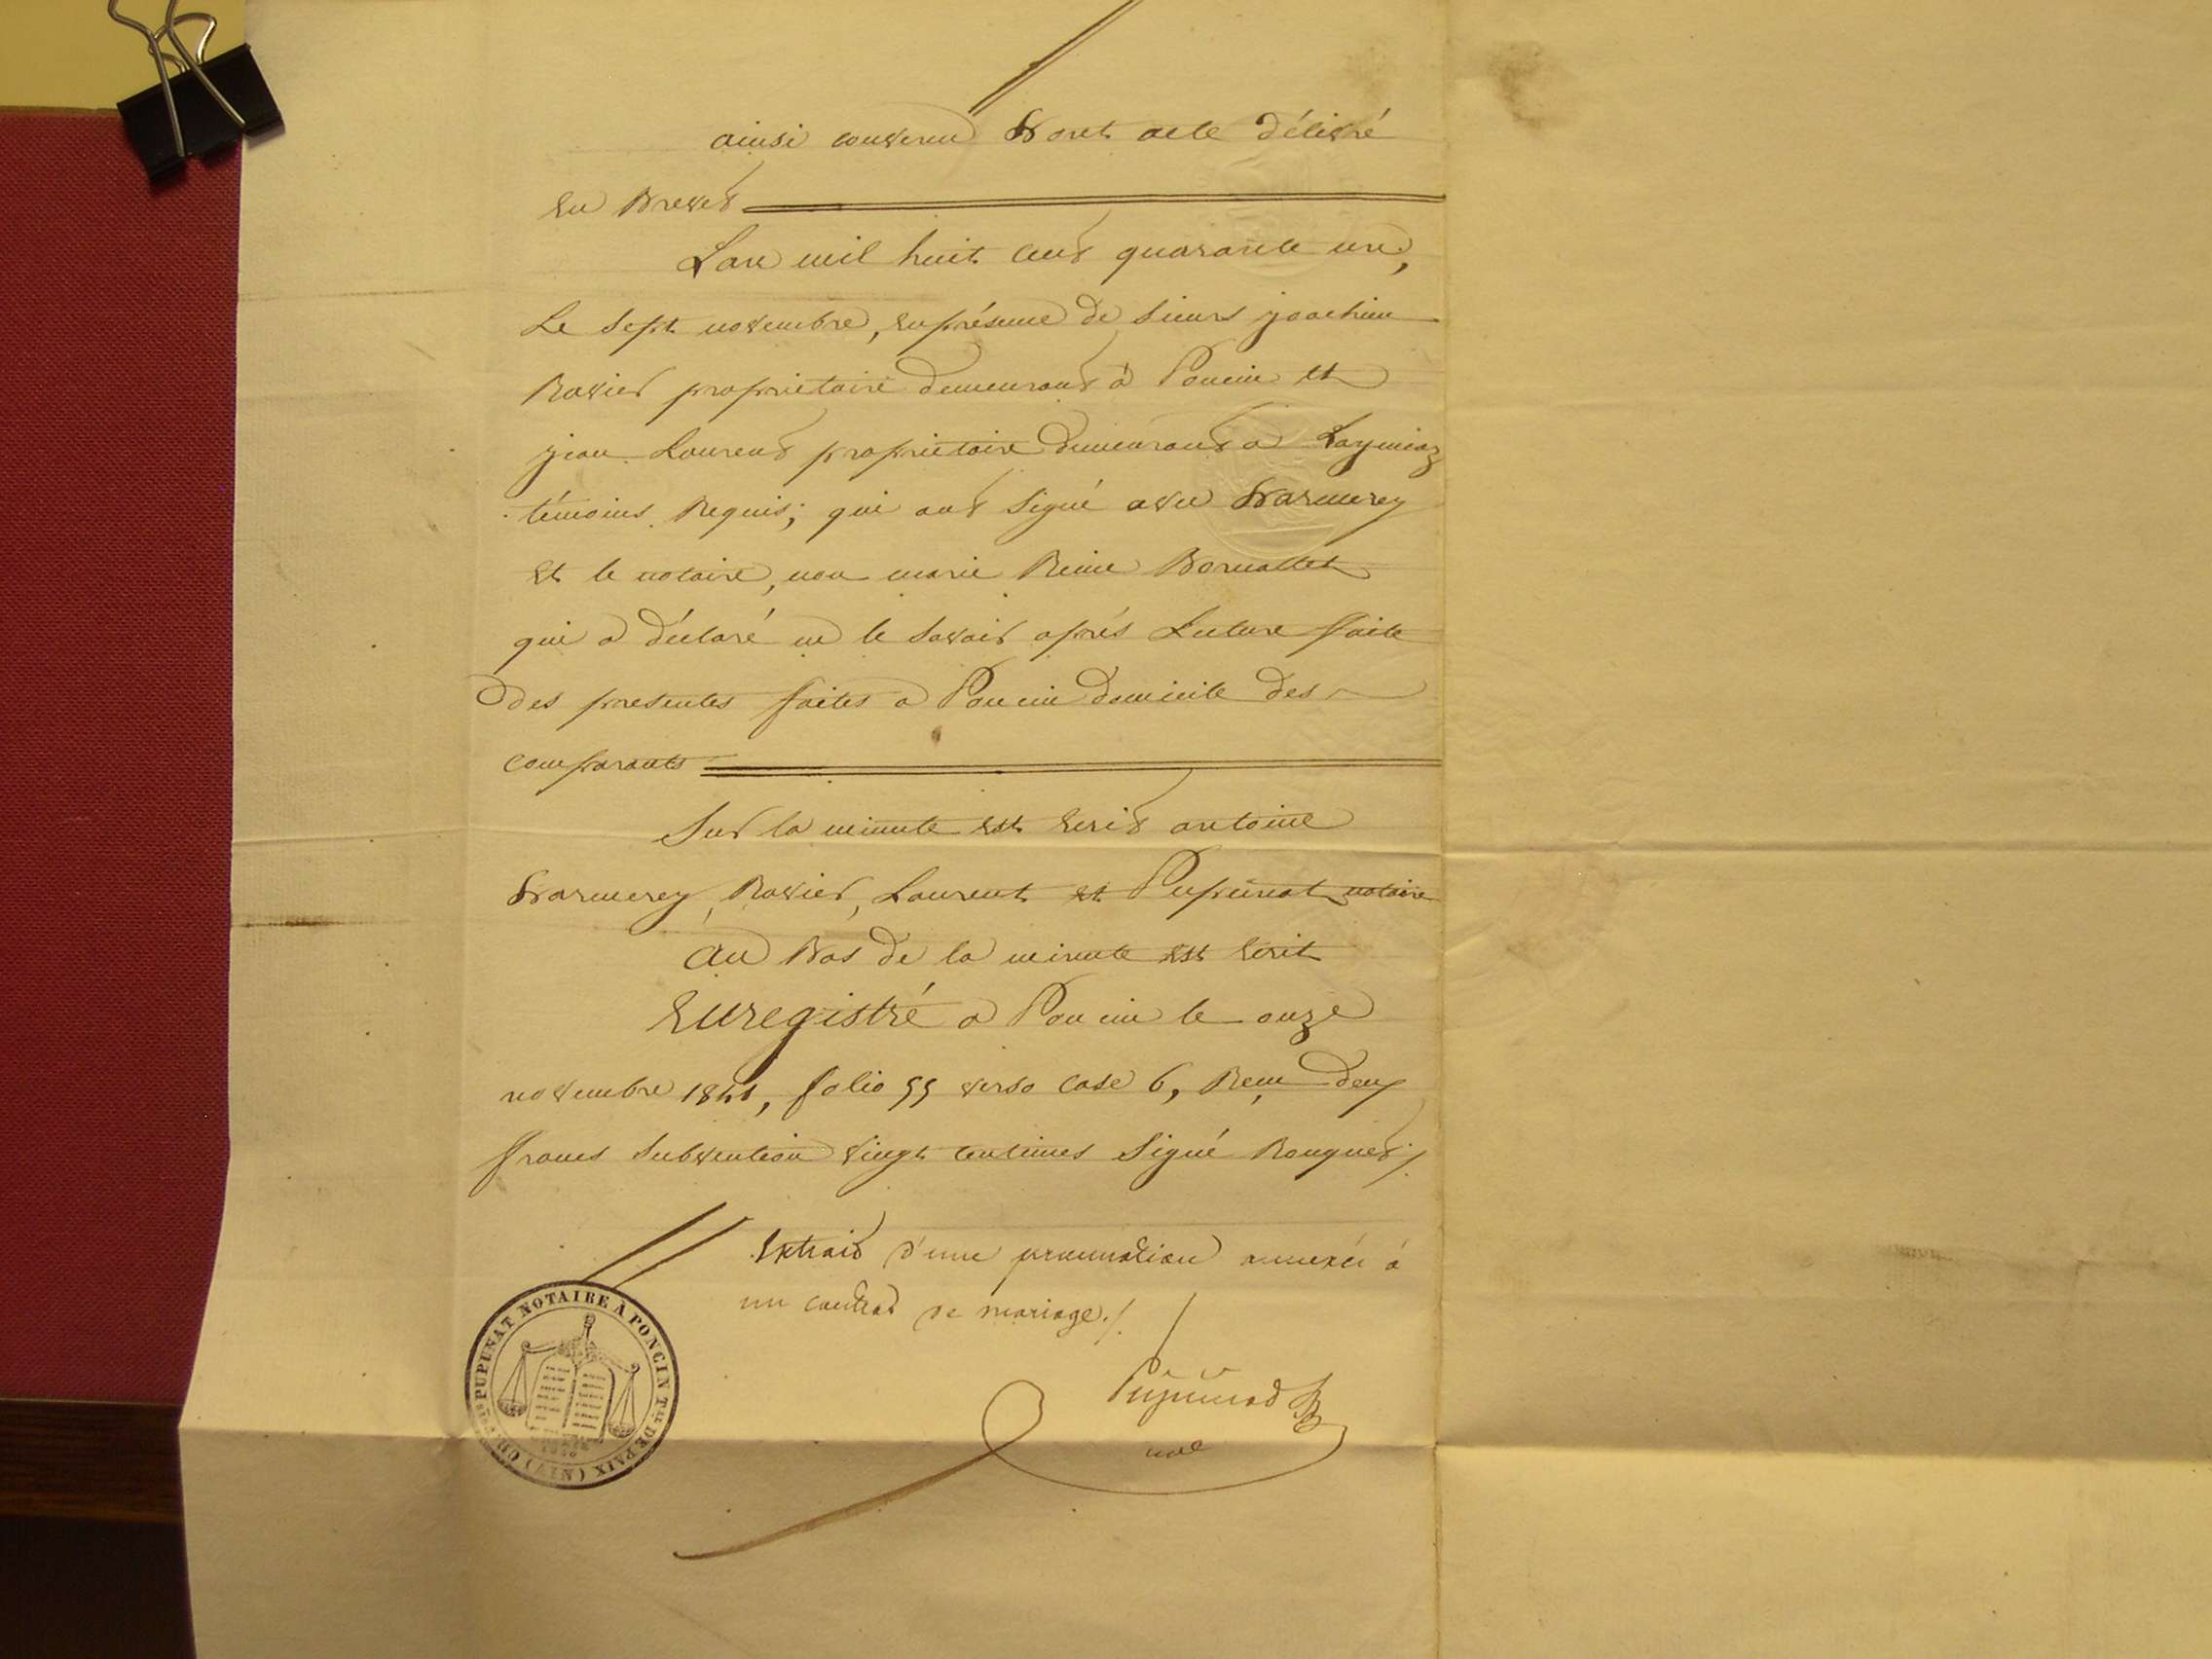 ainsi convenu Dont acte délivré
En Brevet
L'an mil huit cent quarante un,
Le Sept novembre, en présence de Sieurs joachim
Ravier propriétaire demeurant à Poncin et
jean Laurent propriétaire demeurant a Leymiaz
témoins Requis; qui ont Signé avec Darmerey
Et le notaire, non marie Reine Bornallet
qui a déclaré ne le Savoir aprés Lecture faite
des presentes faites a Poncin domicile des
comparants
Sur la minute Est Ecrit antoine
Darmerey, Ravier, Laurent et Pupunat notaire
au Bas de la minute Est Ecrit
Enregistré a Poncin le onze
novembre 1841, folio 55 verso Case 6, Reçu deux
francs Subvention Vingt Centimes Signé Rouquet ./.
Extrait d'une procuration annexée à
un contrat de mariage ./.
Pupunat
not
PUPUNAT NOTAIRE A PONCIN
DE PAIX (AIN)